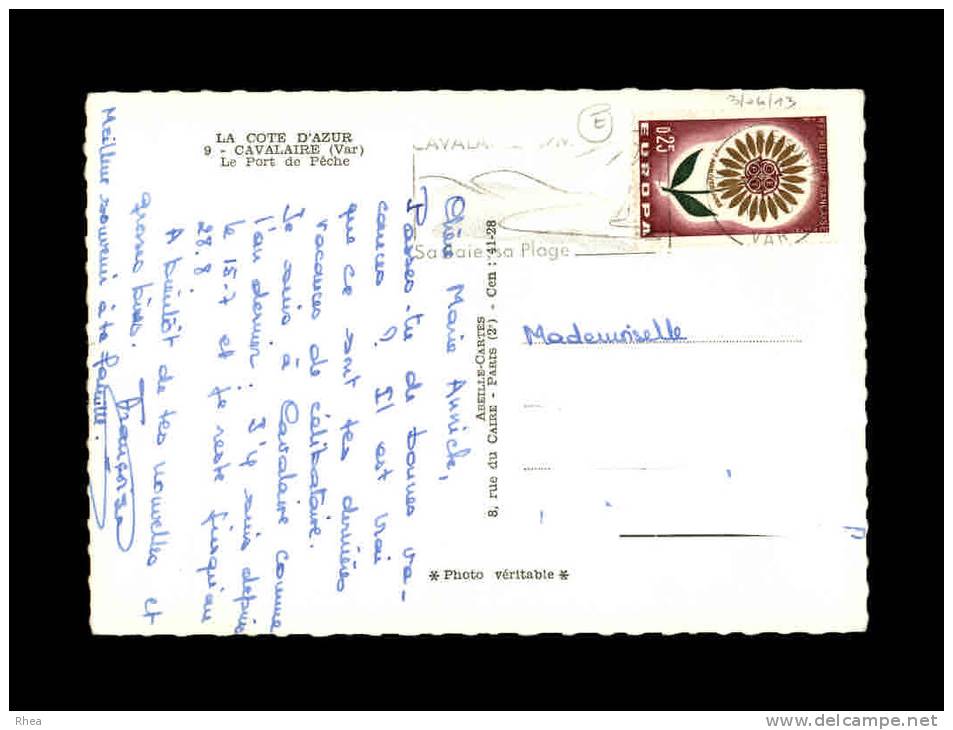 3/04/13
LA COTE D'AZUR
9 - CAVALAIRE (Var)
Le Port de Pêche
E
Sa Baie, sa Plage
0,25
EUROPA
REPUBLIQUE FRANÇAISE
VAR
Chère Marie Annick,
Passes-tu de bonnes va-
cances ? Il est vrai
que ce sont tes dernières
vacances de célibataire.
Je suis à Cavalaire comme
l'an dernier. J'y suis depuis
le 15-7 et je reste jusqu'au
28.8
A bientôt de tes nouvelles et
grosses bises.
Françoise
Meilleur souvenir à ta famille.
ABEILLE-CARTES
8, rue du CAIRE - PARIS (2e) - Cen : 41-28
Mademoiselle
* Photo véritable *
Rhea
www.delcampe.net